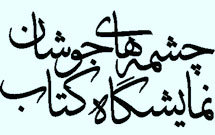 چشمه‌های جوشان
نمایشگاه کتاب